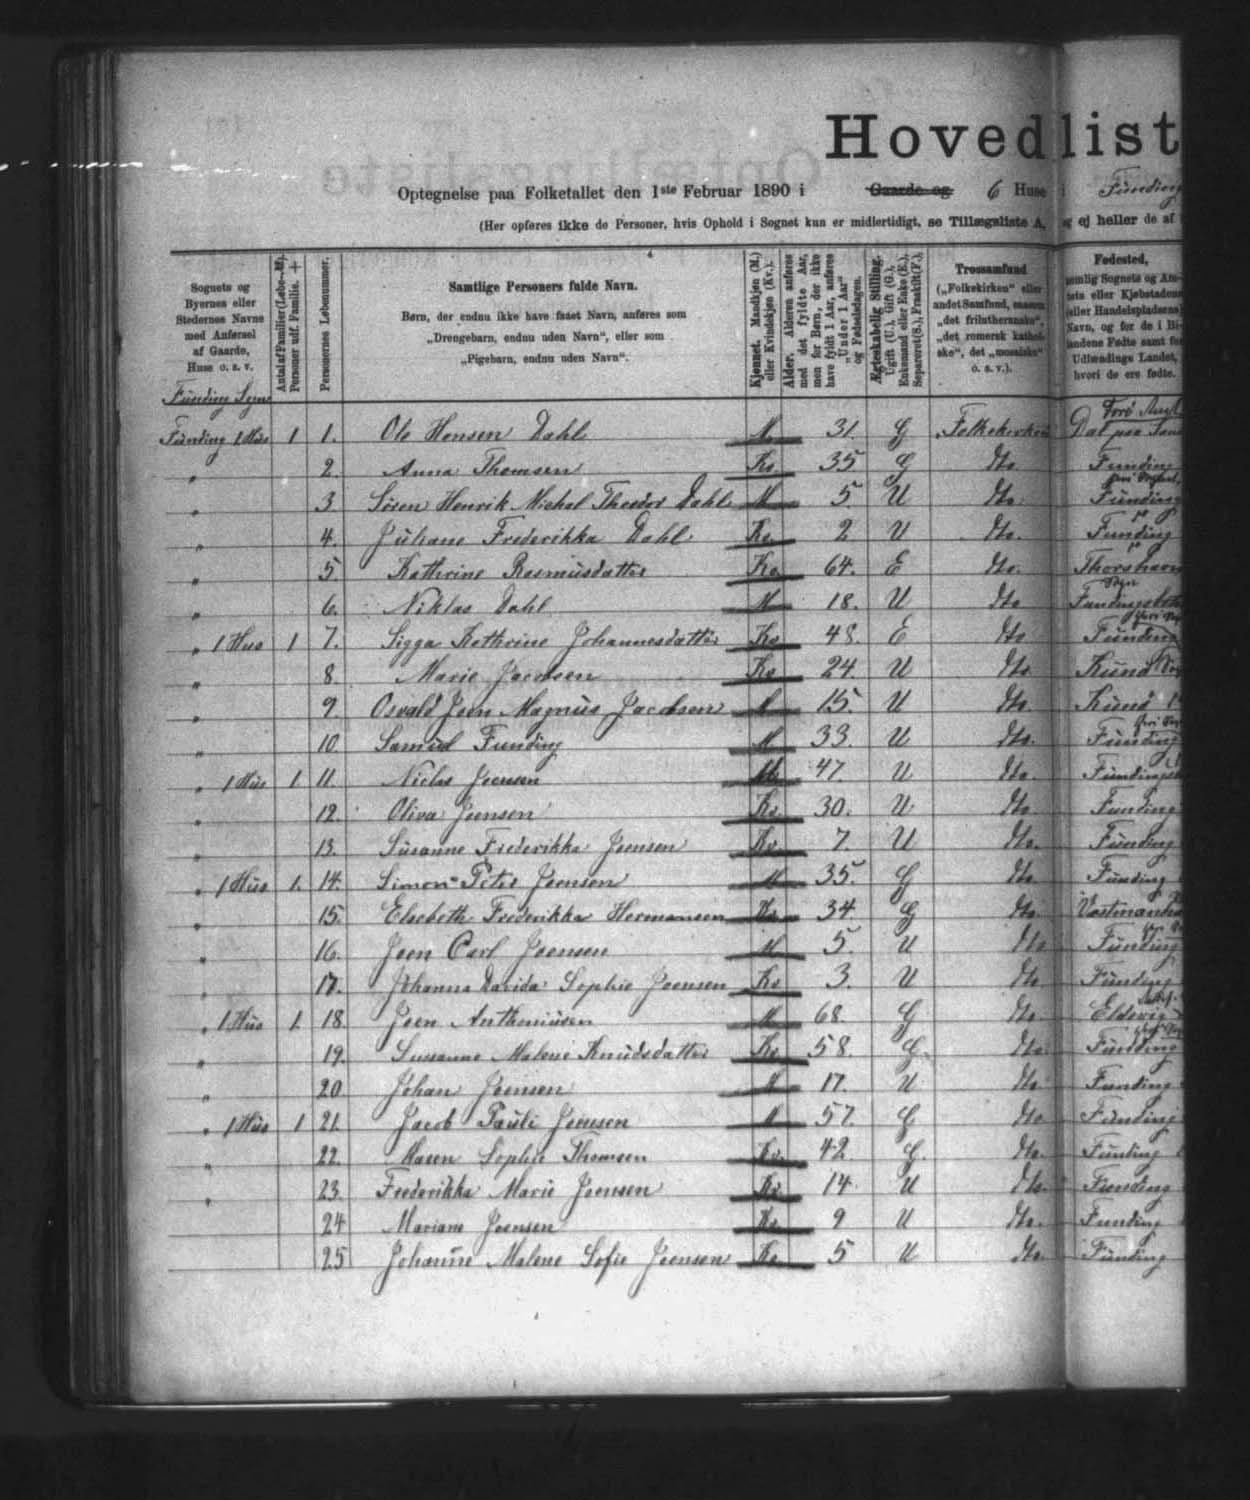 Hovedlist
Optegnelse paa Folketallet den 1ste Februar 1890 i Gaarde og 6 Huse i Funding
(Her opføres ikke de Personer, hvis Ophold i Sognet kun er midlertidigt, se Tillægsliste A, og ej heller de af
Sognets og Byernes eller Stedernes Navne med Anførsel af Gaarde, Huse o. s. v.
Personernes Løbenummer.
Samtlige Personers fulde Navn.
Børn, der endnu ikke have faaet Navn, anføres som
„Drengebarn, endnu uden Navn", eller som
„Pigebarn, endnu uden Navn".
Kjønnet. Mandkjøn (M.) eller Kvindekjøn (Kv.).
Alder. Alderen anføres med det fyldte Aar, men for Børn, der ikke have fyldt 1 Aar, anføres „Under 1 Aar" og Fødselsdagen.
Ægteskabelig Stilling. Ugift (U.), Gift (G.), Enkemand eller Enke (E.), Separeret (S.), Fraskilt (F.).
Trossamfund
(„Folkekirken" eller
andet Samfund, saasom
„det frilutheranske",
„det romersk kathol-
ske", det „mosaiske"
o. s. v.).
Fødested,
Funding Sogn
Funding 1 Hus 1 1. Ole Hansen Dahl M. 31. G Folkekirken
" 2. Anna Thomsen Kv. 35 G Do. Funding
" 3 Søren Henrik Michal Theodor Dahl M 5. U Do. Funding
" 4. Juliane Frederikka Dahl Kv. 2 U Do. Funding
" 5. Kathrine Rasmusdatter Kv. 64. E Do. Thorshavn
" 6. Niklas Dahl M 18. U Do
" 1 Hus 1 7. Sigga Kathrine Johannesdatter Kv 48. E Do Funding
" 8. Marie Jacobsen Kv 24. U Do Kund
" 9. Osvald Joen Magnus Jacobsen M 15. U Do Kund
" 10. Samuel Funding M. 33. U Do. Funding
" 1 Hus 1. 11. Niclas Joensen M. 47. U Do.
" 12. Oliva Joensen Kv. 30. U Do Funding
" 13. Susanne Frederikka Joensen Kv. 7. U Do. Funding
" 1 Hus 1. 14. Simon Peter Joensen M 35. G Do. Funding
" 15. Elsebeth Frederikka Hermansen Kv. 34. G Do.
" 16. Joen Carl Joensen M. 5. U Do Funding
" 17. Johanna Davida Sophie Joensen Kv 3. U Do Funding
" 1 Hus 1. 18. Joen Anthoniusen M. 68. G Do.
" 19. Susanne Malene Knudsdatter Kv. 58. G. Do. Funding
" 20 Johan Joensen M 17. U Do. Funding
" 1 Hus 1 21. Jacob Pauli Joensen M 57. G Do Funding
" 22. Maren Sophie Thomsen Kv. 42. G. Do. Funding
" 23. Frederikka Marie Joensen Kv. 14. U Do. Funding
24 Mariane Joensen Kv. 9 U Do. Funding
25 Johanne Malene Sofie Joensen Kv. 5 U Do. Funding